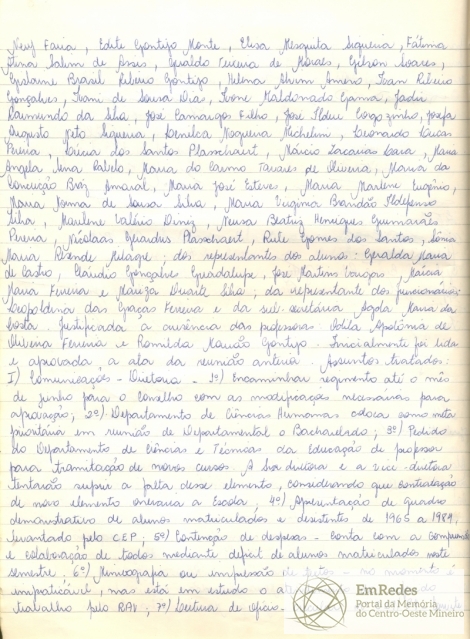 Neuz Faria, Edite Gontijo Monte, Elisa Mesquita Siqueira, Fátima
Salim de Assis, Geraldo Ferreira de Morais, Gilson Soares,
Gislaine Brasil Ribeiro Gontijo, Helena Amero, Ivan Ribeiro
Gonçalves, Ivani de Sousa Dias, Ivone Maldonado Gama, Jadir
Raimundo da Silva, José Camargos Filho, José Ilder
Augusto Neto Siqueira, Nogueira Michelini, Leonardo Lucas
Pereira, Lúcia dos Santos Plasschaert, Márcio Zacarias Lara, Maria
Ângela Lina Rabelo, Maria do Carmo Tavares de Oliveira, Maria da
Conceição Braz Amaral, Maria José Esteves, Maria Marlene Eugênio,
Maria Norma de Sousa Silva, Maria Virgínia Brandão Ildefonso
Silva, Marilene Valério Diniz, Neusa Beatriz Henriques Guimarães
Pereira, Nicolaas Gerardus Plasschaert, Rute Gomes dos Santos, Sônia
Maria Resende ; dos representantes dos alunos: Geralda Maria
de Castro, Cláudio Gonçalves Guadalupe, José Martins , Márcia
Maria Ferreira e Mariza Duarte Silva; da representante dos funcionários:
Leopoldina das Graças Ferreira e da sub-secretária Agda Maria da
Costa. Justificada a ausência das professoras: Adília Apolônia de
Oliveira Ferreira e Romilda Mourão Gontijo. Inicialmente foi lida
e aprovada a ata da reunião anterior. Assuntos tratados:
I) Comunicações - Diretoria - 1º) Encaminhar regimento até o mês
de junho para o Conselho com as modificações necessárias para
aprovação; 2º) Departamento de Ciências Humanas coloca como meta
prioritária em reunião de Departamental o Bacharelado; 3º) Pedido
do Departamento de Ciências e Técnicas da Educação de professor
para tramitação de novos cursos. A Sra diretora e a vice-diretora
tentarão suprir a falta desse elemento, considerando que contratação
de novo elemento oneraria a Escola; 4º) Apresentação de quadro
demonstrativo de alunos matriculados e desistentes de 1965 a 1984,
levantado pelo CEP; 5º) Contenção de despesas - Conta com a compreensão
e colaboração de todos mediante deficit de alunos matriculados neste
semestre. 6º) Mimeografia ou impressão de no momento é
impraticável, mas está em estudo o do
trabalho pelo RAV; 7º) Leitura de ofício -
EmRedes
Portal da Memória
do Centro-Oeste Mineiro